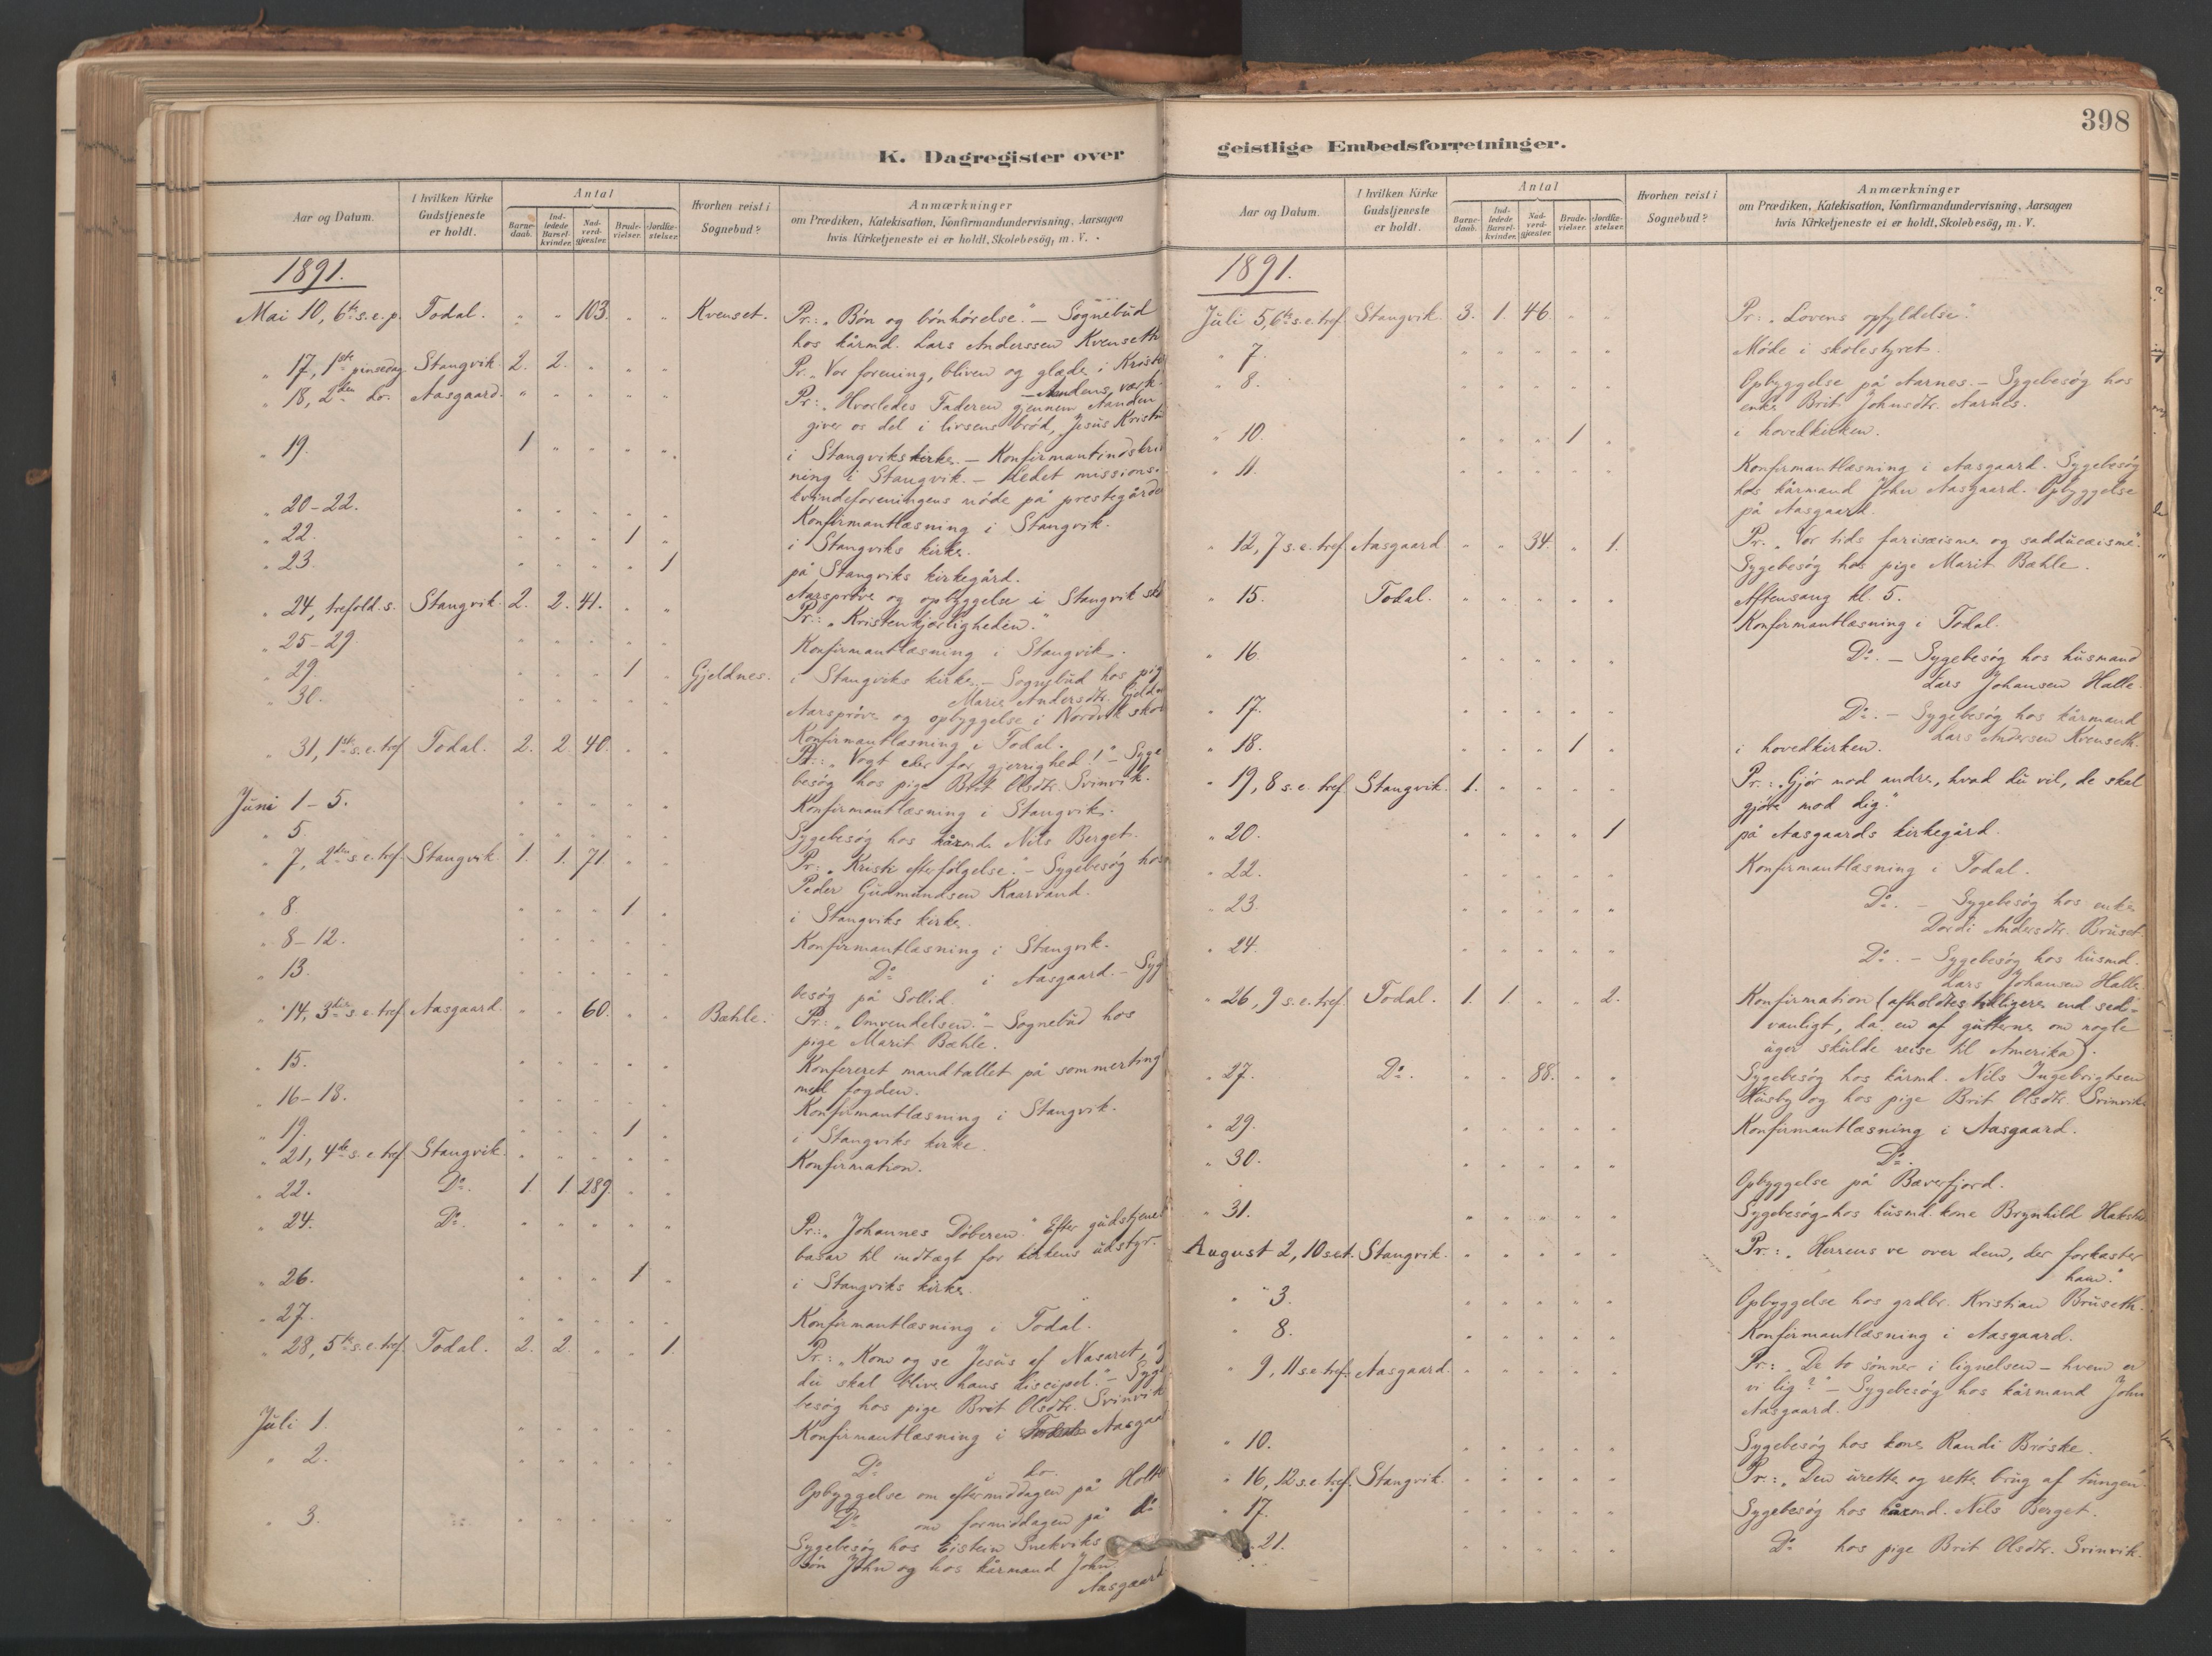 398
K. Dagregister over
Aar og Datum.
I hvilken Kirke Gudstjeneste er holdt.
Antal
Barnedaab.
Indledede Barselkvinder.
Nadverdgjæster.
Brudevielser.
Jordfæstelser.
Hvorhen reist i Sognebud?
Anmærkninger
om Prædiken, Katekisation, Konfirmandundervisning, Aarsagen
hvis Kirketjeneste ei er holdt, Skolebesøg, m. V.
1891.
Mai 10, 6te s. e. p. Todal. " " 103. " " Kvenset. Pr.: „Bøn og bønhørelse." – Sognebud
hos kårmd. Lars Anderssen Kvenseth
" 17, 1ste pinsedag Stangvik 2. 2. " " " Pr. „Vor forening, bliven og glæde i Kristo
– Aandens værk."
" 18, 2den do. Aasgaard. " " " " " Pr.: „Hvorledes Faderen gjennem Aanden
giver os del i livsens brød, Jesus Kristus
" 19. 1 " " " " i Stangviks kirke. – Konfirmantindskriv
ning i Stangvik. – Ledet missions-
kvindeforeningens møde på prestegården
" 20-22. " " " " " Konfirmantlæsning i Stangvik.
" 22. " " " 1 " i Stangviks kirke.
" 23. " " " " 1 på Stangviks kirkegård.
Aarsprøve og opbyggelse i Stangvik sko
" 24, trefold. s. Stangvik 2. 2. 41. " " Pr.: „Kristenkjærligheden."
" 25-29. " " " " " Konfirmantlæsning i Stangvik.
" 29. " " " 1 " Gjeldnes. i Stangviks kirke. – Sognebud hos pig
Marie Andersdtr. Gjeldn
" 30. Aarsprøve og opbyggelse i Nordvik skol
Konfirmantlæsning i Todal.
" 31, 1ste s. e. tref. Todal. 2. 2. 40. " " Pr.: „Vogt eder for gjerrighed!" – Syge
besøg hos pige Brit Olsdtr. Svinvik.
Juni 1-5. " " " " " Konfirmantlæsning i Stangvik.
" 5. " " " " " Sygebesøg hos kårmd. Nils Berget.
" 7, 2den s. e. tref. Stangvik 1. 1. 71. " " Pr.: „Kristi efterfølgelse." – Sygebesøg hos
Peder Gudmundsen Kaarvand.
" 8. " " " 1 " i Stangviks kirke.
" 8-12. " " " " " Konfirmantlæsning i Stangvik.
" 13. " " " " " Do. i Aasgaard. – Syge
besøg på Sollid.
" 14, 3die s. e. tref. Aasgaard. " " 60. " " Bæhle. Pr.: „Omvendelsen." – Sognebud hos
pige Marit Bæhle.
" 15. " " " " " Konfereret mandtallet på sommerting
med fogden.
" 16-18. " " " " " Konfirmantlæsning i Stangvik.
" 19. " " " 1 " i Stangviks kirke.
" 21, 4de s. e. tref. Stangvik. " " " " " Konfirmation.
" 22. Do. 1. 1. 289. " "
" 24. Do. " " " " " Pr.: „Johannes Døberen." Efter gudstjenes
basar til indtægt for kirkens udstyr.
" 26. " " " 1 " i Stangviks kirke.
" 27. " " " " " Konfirmantlæsning i Todal.
" 28, 5te s. e. tref. Todal. 2. 2. " " 1. Pr.: „Kom og se Jesus af Nasaret, og
du skal blive hans discipel." – Syge
besøg hos pige Brit Olsdtr. Svinvik
Juli 1. " " " " " Konfirmantlæsning i Aasgaar
" 2. " " " " " Do. i do.
Opbyggelse om eftermiddagen på Holte
" 3. " " " " " Do. om formiddagen på do
Sygebesøg hos Eistein Snekviks
søn John og hos kårmand John
Aasgaard
geistlige Embedsforretninger.
Aar og Datum.
I hvilken Kirke Gudstjeneste er holdt.
Antal
Barnedaab.
Indledede Barselkvinder.
Nadverdgjæster.
Brudevielser.
Jordfæstelser.
Hvorhen reist i Sognebud?
Anmærkninger
om Prædiken, Katekisation, Konfirmandundervisning, Aarsagen
hvis Kirketjeneste ei er holdt, Skolebesøg, m. V.
1891.
Juli 5, 6te s. e. tref. Stangvik. 3. 1. 46. " " Pr.: „Lovens opfyldelse."
" 7. " " " " " Møde i skolestyret.
" 8. " " " " " Opbyggelse på Aarnes. – Sygebesøg hos
enke Brit Johnsdtr. Aarnes.
" 10. " " " 1 " i hovedkirken.
" 11. " " " " " Konfirmantlæsning i Aasgaard. Sygebesøg
hos kårmand John Aasgaard. Opbyggelse
på Aasgaard.
" 12, 7 s. e. tref. Aasgaard " " 34. " 1. Pr. „Vor tids farisæisme og sadducæisme."
Sygebesøg hos pige Marit Bæhle.
" 15. Todal. " " " " " Aftensang kl. 5.
Konfirmantlæsning i Todal.
" 16. " " " " " Do. – Sygebesøg hos husmand
Lars Johansen Halle.
" 17. " " " " " Do. – Sygebesøg hos kårmand
Lars Andersen Kvenseth.
" 18. " " " 1 " i hovedkirken.
" 19, 8 s. e. tref. Stangvik. 1. Pr.: „Gjør mod andre, hvad du vil, de skal
gjøre mod dig."
" 20. " " " " 1 på Aasgaards kirkegård.
" 22. " " " " " Konfirmantlæsning i Todal.
" 23. " " " " " Do. – Sygebesøg hos enke
Dordi Andersdtr. Bruset.
" 24. " " " " " Do. – Sygebesøg hos husmd.
Lars Johansen Halle.
" 26, 9 s. e. tref. Todal. 1. 1. " " 2. Konfirmation (afholdtes tidligere end sed-
vanligt, da en af gutterne om nogle
uger skulde reise til Amerika).
" 27. Do. " " 88. " " Sygebesøg hos kårmd. Nils Ingebrigtsen
Husby og hos pige Brit Olsdtr. Svinvik
" 29. " " " " " Konfirmantlæsning i Aasgaard.
" 30. " " " " " Do.
Opbyggelse på Bæverfjord.
" 31. " " " " " Sygebesøg hos husmd. kone Brynhild
August 2, 10 s. e. t. Stangvik. " " " " " Pr.: „Herrens ve over dem, der forkaster
ham."
" 3. " " " " " Opbyggelse hos grdbr. Kristian Bruseth.
" 8. " " " " " Konfirmantlæsning i Aasgaard.
" 9, 11 s. e. tref. Aasgaard. " " " " " Pr.: „De to sønner i lignelsen – hvem er
vi lig?" – Sygebesøg hos kårmand John
Aasgaard.
" 10. " " " " " Sygebesøg hos kone Randi Brøske.
" 16, 12 s. e. tref. Stangvik. " " " " " Pr.: „Den urette og rette brug af tungen."
" 17. " " " " " Sygebesøg hos kårmd. Nils Berget.
" 21. " " " " " Do. hos pige Brit Olsdtr. Svinvik.